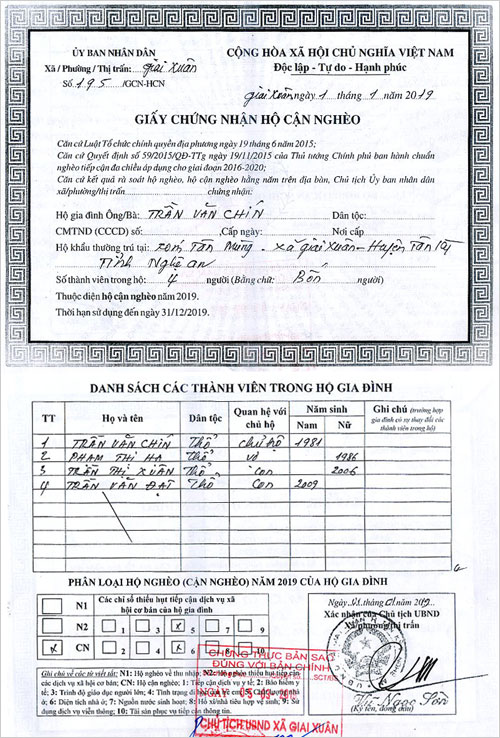 ỦY BAN NHÂN DÂN
Xã / Phường / Thị trấn: Giai Xuân
Số: 195 /GCN-HCN
CỘNG HÒA XÃ HỘI CHỦ NGHĨA VIỆT NAM
Độc lập - Tự do - Hạnh phúc
Giai Xuân ngày 1 tháng 1 năm 2019
GIẤY CHỨNG NHẬN HỘ CẬN NGHÈO
Căn cứ Luật Tổ chức chính quyền địa phương ngày 19 tháng 6 năm 2015;
Căn cứ Quyết định số 59/2015/QĐ-TTg ngày 19/11/2015 của Thủ tướng Chính phủ ban hành chuẩn
nghèo tiếp cận đa chiều áp dụng cho giai đoạn 2016-2020;
Căn cứ kết quả rà soát hộ nghèo, hộ cận nghèo hằng năm trên địa bàn, Chủ tịch Ủy ban nhân dân
xã/phường/thị trấn chứng nhận:
Hộ gia đình Ông/Bà: TRẦN VĂN CHÍN Dân tộc:
CMTND (CCCD) số: Cấp ngày: Nơi cấp
Hộ khẩu thường trú tại: xóm Tân Mừng - xã Giai Xuân - Huyện Tân Kỳ
Tỉnh Nghệ an
Số thành viên trong hộ: 4 người (Bằng chữ: Bốn người)
Thuộc diện hộ cận nghèo năm 2019.
Thời hạn sử dụng đến ngày 31/12/2019.
DANH SÁCH CÁC THÀNH VIÊN TRONG HỘ GIA ĐÌNH
TT Họ và tên Dân tộc Quan hệ với chủ hộ Năm sinh Nam Nữ Ghi chú (trường hợp gia đình có sự thay đổi các thành viên trong hộ)
1 TRẦN VĂN CHÍN Thổ chủ hộ 1981
2 PHẠM THỊ HÀ Thổ vợ 1986
3 TRẦN THỊ XUÂN Thổ con 2006
4 TRẦN VĂN ĐẠT Thổ Con 2009
PHÂN LOẠI HỘ NGHÈO (CẬN NGHÈO) NĂM 2019 CỦA HỘ GIA ĐÌNH
N1 Các chỉ số thiếu hụt tiếp cận dịch vụ xã
hội cơ bản của hộ gia đình
N2 1 3 x 5 7 9
x CN 2 4 x 6 8 10
Ngày 01 tháng 01 năm 2019
Xác nhận của Chủ tịch UBND
Xã/phường/thị trấn
Ghi chú về các từ viết tắt: N1: Hộ nghèo về thu nhập; N2: Hộ nghèo thiếu hụt tiếp cận
các dịch vụ xã hội cơ bản; CN: Hộ cận nghèo; 1: Tiếp cận dịch vụ y tế; 2: Bảo hiểm y
tế; 3: Trình độ giáo dục người lớn; 4: Tình trạng đi học của trẻ em; 5: Chất lượng nhà
ở; 6: Diện tích nhà ở; 7: Nguồn nước sinh hoạt; 8: Hố xí/nhà tiêu hợp vệ sinh; 9: Sử
dụng dịch vụ viễn thông; 10: Tài sản phục vụ tiếp cận thông tin.
CHỨNG THỰC BẢN SAO
ĐÚNG VỚI BẢN CHÍNH
NGÀY 05-09-20
CHỦ TỊCH UBND XÃ GIAI XUÂN
Ngọc Sơn
(Ký tên, đóng dấu)